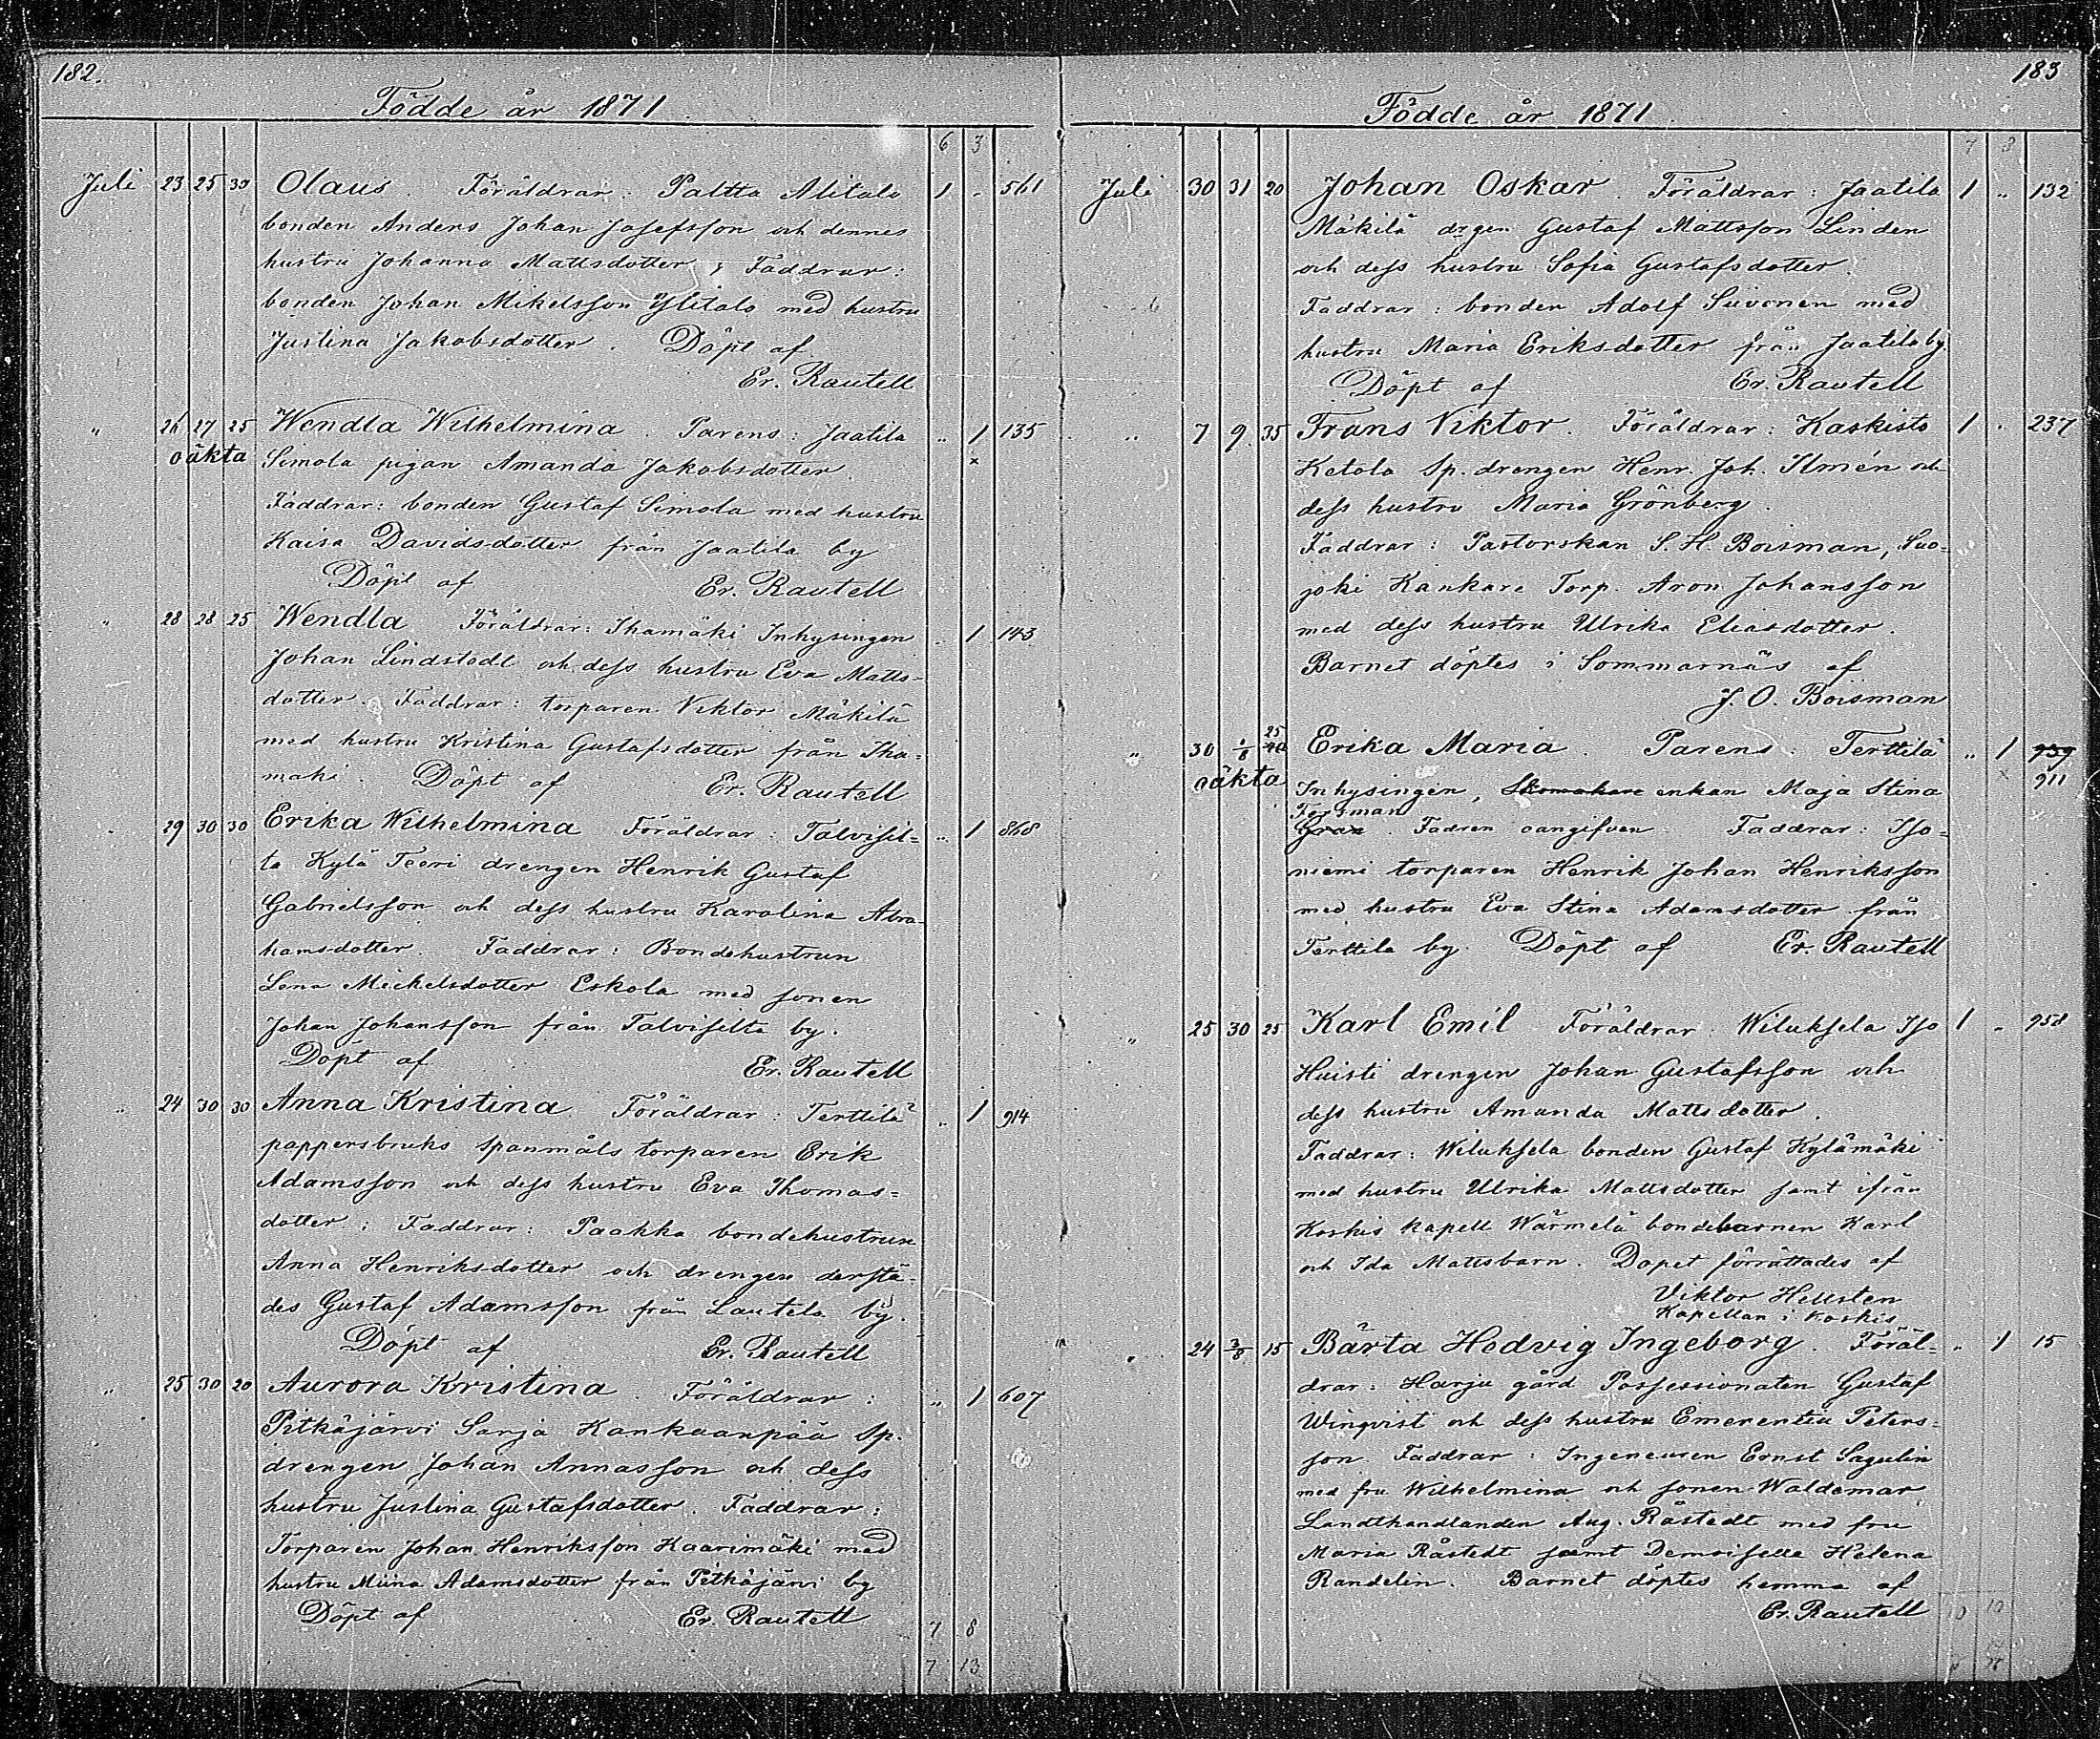 182.
Födde år 1871
6 3
Juli 23 25 30 Olaus. Föräldrar: Paltta Alitalo 1 " 561
bonden Anders Johan Josefsson och dennes
hustru Johanna Mattsdotter; Faddrar:
bonden Johan Mikelsson Ylitalo med hustru
Justina Jakobsdotter. Döpt af
Er. Rautell
" 26 27 25 Wendla Wilhelmina. Parens: Jaatila " 1 135
oäkta Simola pigan Amanda Jakobsdotter. x
Faddrar: bonden Gustaf Simola med hustru
Kaisa Davidsdotter från Jaatila by
Döpt af Er. Rautell
" 28 28 25 Wendla Föräldrar: Ihamäki Inhysingen " 1 143
Johan Lindstedt och dess hustru Eva Matts-
dotter. Faddrar: torparen Viktor Mäkilä
med hustru Kristina Gustafsdotter från Iha=
mäki. Döpt af Er. Rautell
29 30 30 Erika Wilhelmina Föräldrar: Talvisil= " 1 868
ta Kylä Teeri drengen Henrik Gustaf
Gabrielsson och dess hustru Karolina Abra-
hamsdotter. Faddrar: Bondehustrun
Lena Michelsdotter Eskola med sonen
Johan Johansson från Talvisilta by.
Döpt af Er. Rautell
" 24 30 30 Anna Kristina Föräldrar: Terttilä " 1 914
pappersbruks spanmåls torparen Erik
Adamsson och dess hustru Eva Thomas=
dotter; Faddrar: Paakka bondehustrun
Anna Henriksdotter och drengen derstä=
des Gustaf Adamsson från Lautela by.
Döpt af Er. Rautell
" 25 30 20 Aurora Kristina. Föräldrar: " 1 607
Pitkäjärvi Sarja Kankaanpää Sp.
drengen Johan Annasson och dess
hustru Justina Gustafsdotter. Faddrar:
Torparen Johan Henriksson Kaarimäki med
hustru Miina Adamsdotter från Pitkäjärvi by
Döpt af Er. Rautell
7 8
7 13
183
Födde år 1871
7 8
Juli 30 31 20 Johan Oskar. Föräldrar: Jaatila 1 " 132
Mäkilä drgen Gustaf Mattsson Linden
och dess hustru Sofia Gustafsdotter.
Faddrar: bonden Adolf Suvonen med
hustru Maria Eriksdotter från Jaatila by.
Döpt af Er. Rautell
" 7 9 35 Frans Viktor. Föräldrar: Kaskisto 1 " 237
Ketola Sp. drengen Henr. Joh. Ilmén och
dess hustru Maria Grönberg.
Faddrar: Pastorskan S. H. Boisman, Suo-
joki Kankare Torp. Aron Johansson
med dess hustru Ulrika Eliasdotter.
Barnet döptes i Sommarnäs af
J. O. Boisman
25
" 30 1/8 40 Erika Maria. Parens: Terttilä " 1 939
oäkta Inhysingen, Skomakare enkan Maja Stina x 911
Forsman
Gran. Fadren oangifven. Faddrar: Iso=
niemi torparen Henrik Johan Henriksson
med hustru Eva Stina Adamsdotter från
Terttila by. Döpt af Er. Rautell
" 25 30 25 Karl Emil Föräldrar: Wiluksela Iso 1 " 958
Huisti drengen Johan Gustafsson och
dess hustru Amanda Mattsdotter.
Faddrar: Wiluksela bonden Gustaf Kylämäki
med hustru Ulrika Mattsdotter samt ifrån
Koskis kapell Wärmelä bondebarnen Karl
och Ida Mattsbarn. Dopet förrättades af
Viktor Hellsten
Kapellan i Koskis
" 24 3/8 15 Bärta Hedvig Ingeborg. Föräl= " 1 15
drar: Harju gård Possessionaten Gustaf
Winqvist och dess hustru Emerentia Peters=
son. Faddrar: Ingeneuren Ernst Sagulin
med fru Wilhelmina och sonen Waldemar,
Landthandlanden Aug. Råstedt med fru
Maria Råstedt samt Demoiselle Helena
Randelin. Barnet döptes hemma af
Er. Rautell
10 10